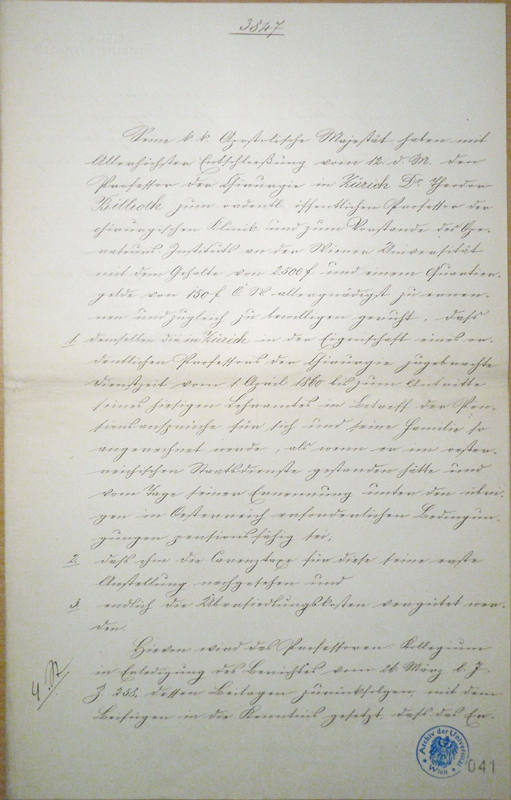 3847
Seine k. k. Apostolische Majestät haben mit
Allerhöchster Entschließung vom 12. d. M. den
Professor der Chirurgie in Zürich Dr. Theodor
Billroth zum ordentl. öffentlichen Professor der
chirurgischen Klinik und zum Vorstande des Ope-
rateurs Instituts an der Wiener Universität
mit dem Gehalte von 2500 f und einem Quartier-
gelde von 150 f Ö W allergnädigst zu ernen-
nen und zugleich zu bewilligen geruht, daß
1. demselben die in Zürich in der Eigenschaft eines or-
dentlichen Professors der Chirurgie zugebrachte
Dienstzeit vom 1. April 1860 bis zum Antritte
seines hiesigen Lehramtes in Betreff der Pen-
sionsansprüche für sich und seine Familie so
angerechnet werde, als wenn er im oester-
reichischen Staatsdienste gestanden hätte und
vom Tage seiner Ernennung unter den übri-
gen in Oesterreich erforderlichen Bedingun-
gungen pensionsfähig sei,
2. daß ihm die Carenztaxe für diese seine erste
Anstellung nachgesehen und
3. endlich die Übersiedlungskosten vergütet wer-
den.
Hievon wird das Professoren Kollegium
in Erledigung des Berichtes vom 26. März l. J.
Z. 251, dessen Beilagen zurückfolgen, mit dem
Beifügen in die Kenntnis gesetzt, daß das Er-
Archiv der Universität Wien
041